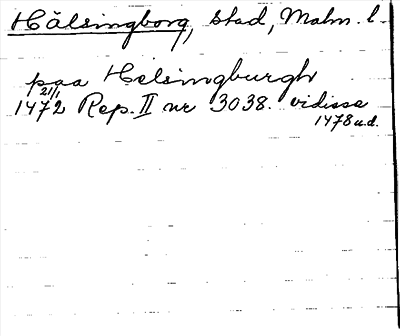 Hälsingborg, stad, Malm. l.
paa Helsingburgh
21/1
1472 Rep. II nr 3038. vidisse
1478 u.d.